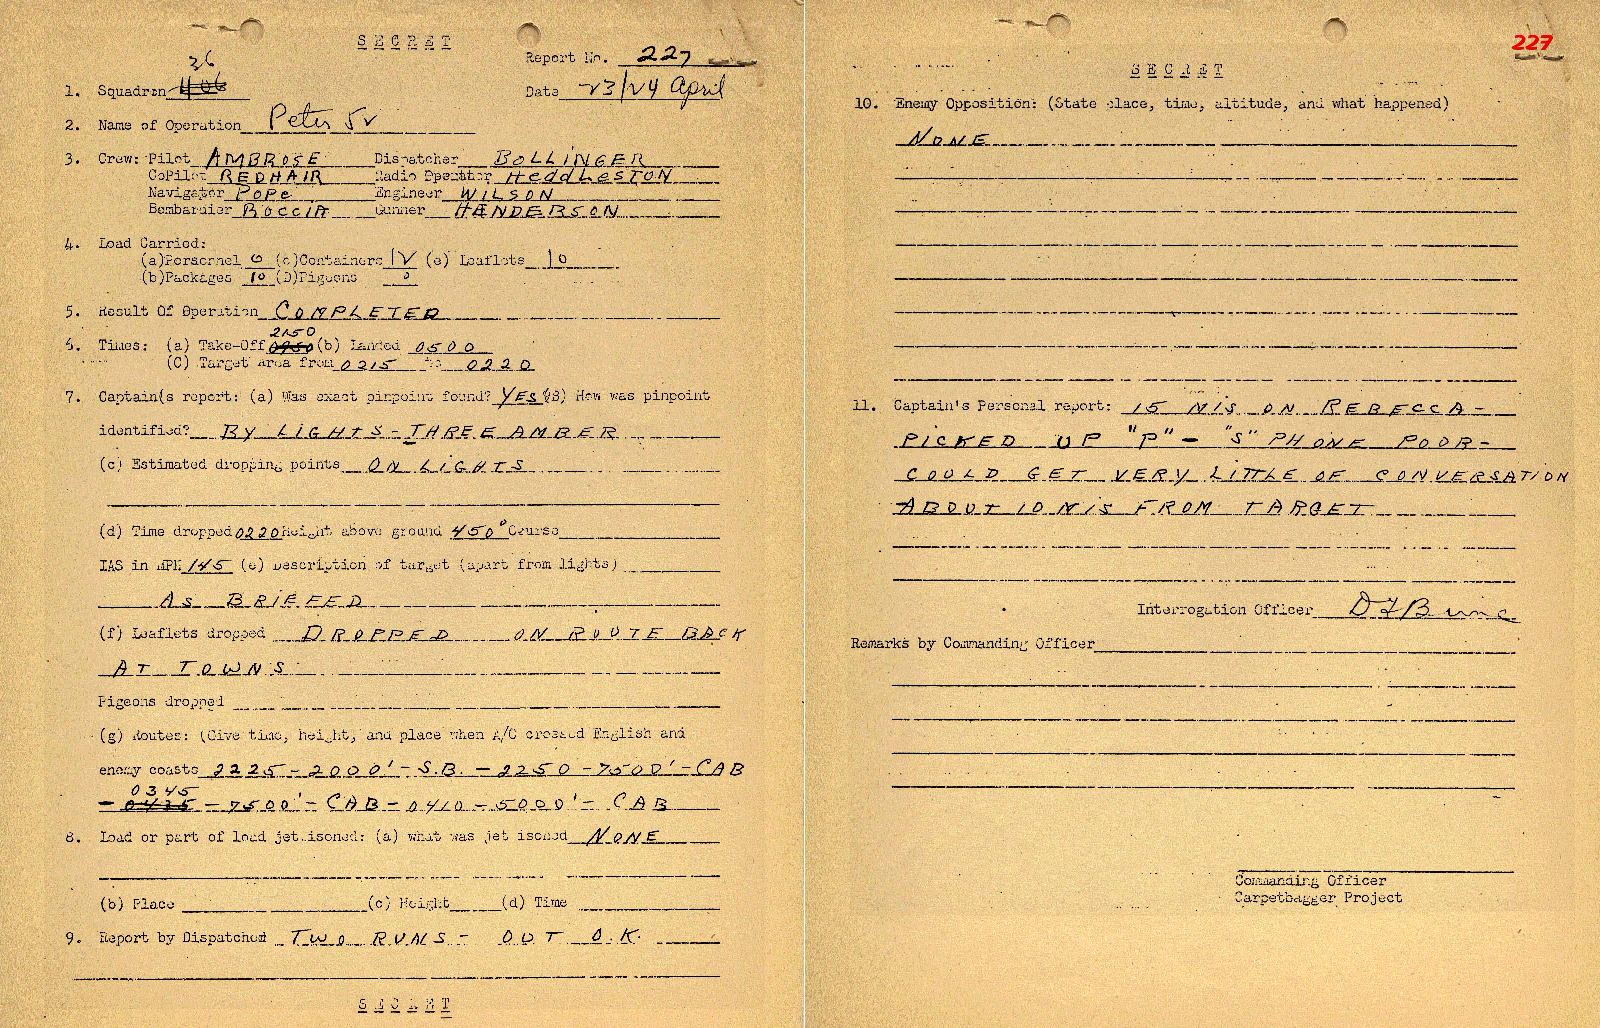 SECRET
Report No. 227
36
1. Squadron 406
Date 23/24 April
2. Name of Operation Peter 52
3. Crew: Pilot AMBROSE Dispatcher BOLLINGER
CoPilot REDHAIR Radio Operator HEDDLESTON
Navigator POPE Engineer WILSON
Bombardier ROCCIA Gunner HENDERSON
4. Load Carried:
(a)Personnel 0 (c)Containers 12 (e) Leaflets 10
(b)Packages 10 (D)Pigeons 0
5. Result Of Operation COMPLETED
2150
6. Times: (a) Take-Off (b) Landed 0500
(C) Target Area from 0215 to 0220
7. Captain(s report: (a) Was exact pinpoint found? YES (B) How was pinpoint
identified? BY LIGHTS - THREE AMBER
(c) Estimated dropping points ON LIGHTS
(d) Time dropped 0220 Height above ground 450' Course
IAS in MPH 145 (e) Description of target (apart from lights)
AS BRIEFED
(f) Leaflets dropped DROPPED ON ROUTE BACK
AT TOWNS
Pigeons dropped
(g) Routes: (Give time, height, and place when A/C crossed English and
enemy coasts 2225 - 2000' - S.B. - 2250 - 7500' - CAB
0345
- 0435 - 7500' - CAB - 0410 - 5000' - CAB
8. Load or part of load jettisoned: (a) what was jettisoned NONE
(b) Place (c) Height (d) Time
9. Report by Dispatcher TWO RUNS - OUT O.K.
SECRET
227
SECRET
10. Enemy Opposition: (State place, time, altitude, and what happened)
NONE
11. Captain's Personal report: 15 MIS ON REBECCA -
PICKED UP "P" - "S" PHONE POOR -
COULD GET VERY LITTLE OF CONVERSATION
ABOUT 10 MIS FROM TARGET
Interrogation Officer
Remarks by Commanding Officer
Commanding Officer
Carpetbagger Project